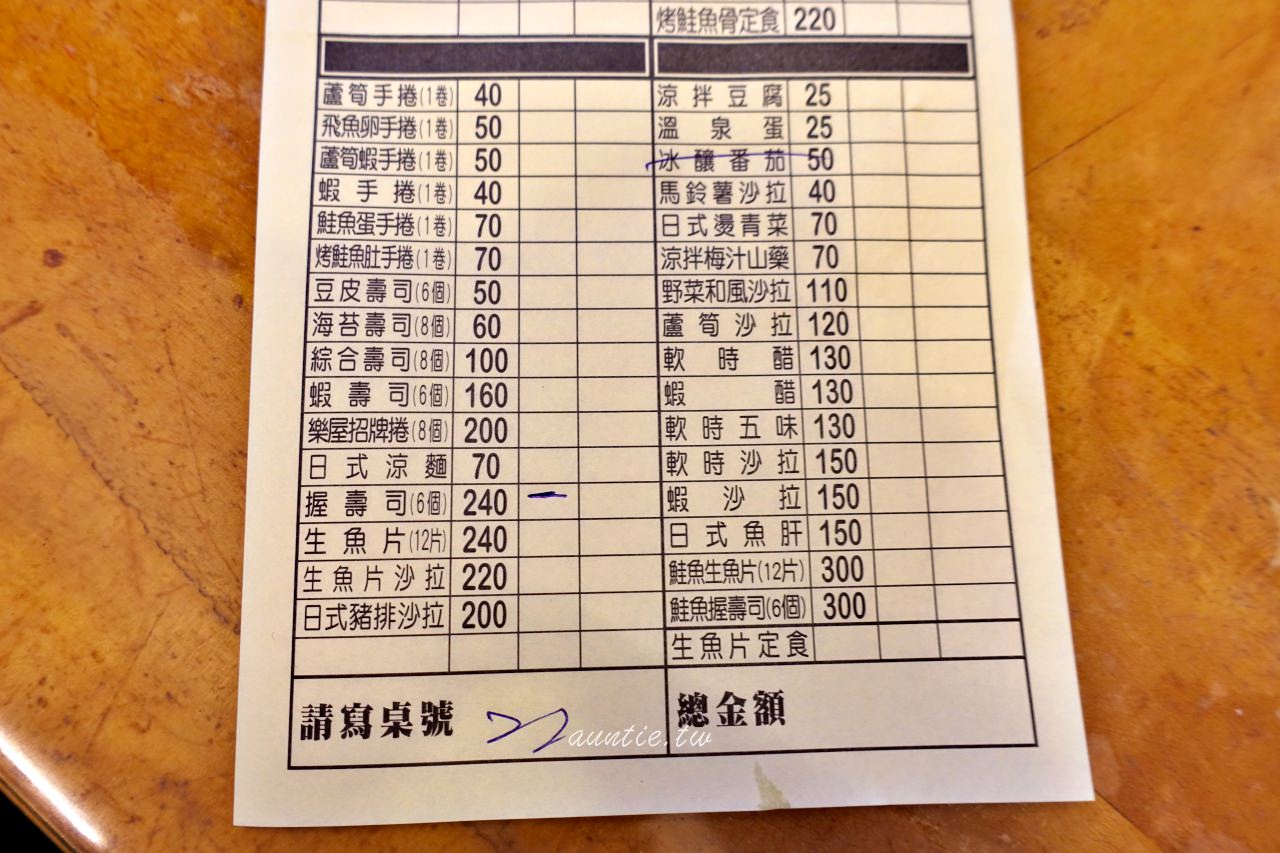 烤鮭魚骨定食 220
蘆筍手捲(1卷) 40
飛魚卵手捲(1卷) 50
蘆筍蝦手捲(1卷) 50
蝦手捲(1卷) 40
鮭魚蛋手捲(1卷) 70
烤鮭魚肚手捲(1卷) 70
豆皮壽司(6個) 50
海苔壽司(8個) 60
綜合壽司(8個) 100
蝦壽司(6個) 160
樂屋招牌捲(8個) 200
日式涼麵 70
握壽司(6個) 240
生魚片(12片) 240
生魚片沙拉 220
日式豬排沙拉 200
涼拌豆腐 25
溫泉蛋 25
冰釀番茄 50
馬鈴薯沙拉 40
日式燙青菜 70
涼拌梅汁山藥 70
野菜和風沙拉 110
蘆筍沙拉 120
軟時醋 130
蝦醋 130
軟時五味 130
軟時沙拉 150
蝦沙拉 150
日式魚肝 150
鮭魚生魚片(12片) 300
鮭魚握壽司(6個) 300
生魚片定食
請寫桌號
總金額
auntie.tw